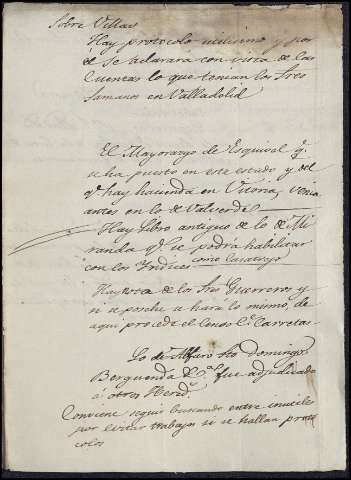 Sobre Villas
Hay protocolo antiguo y por
el se aclarara con vista de las
Cuentas lo que tenian los Sres
Samanos en Valladolid
El Mayorazgo de Esquivel q.
se ha puesto en este estado y del
q. hay hacienda en Vitoria, venia
antes en lo de Valverde
Hay Libro antiguo de lo de Mi
randa q. se podra habilitar
con los Yndices como Casarrejo
Hay nota de los Sres Guerreros y
si se puede se hara lo mismo, de
aqui procede el Censo C. Carretas
Lo de Alfaro Sto Domingo
Berguenda &c. fue adjudicado
á otros Hered.
Conviene seguir buscando entre inutiles
por evitar trabajos si se hallan proto
colos